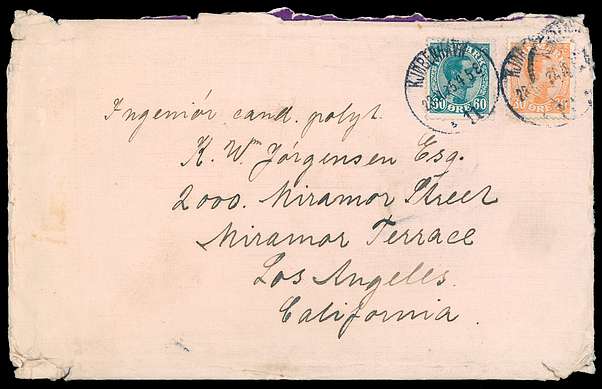 KJØBENHAVN
60 ØRE 60
ØRE
Ingeniör cand. polyt.
K. Wm Jörgensen Esq.
2000. Miramor Street
Miramor Terrace
Los Angeles.
California.